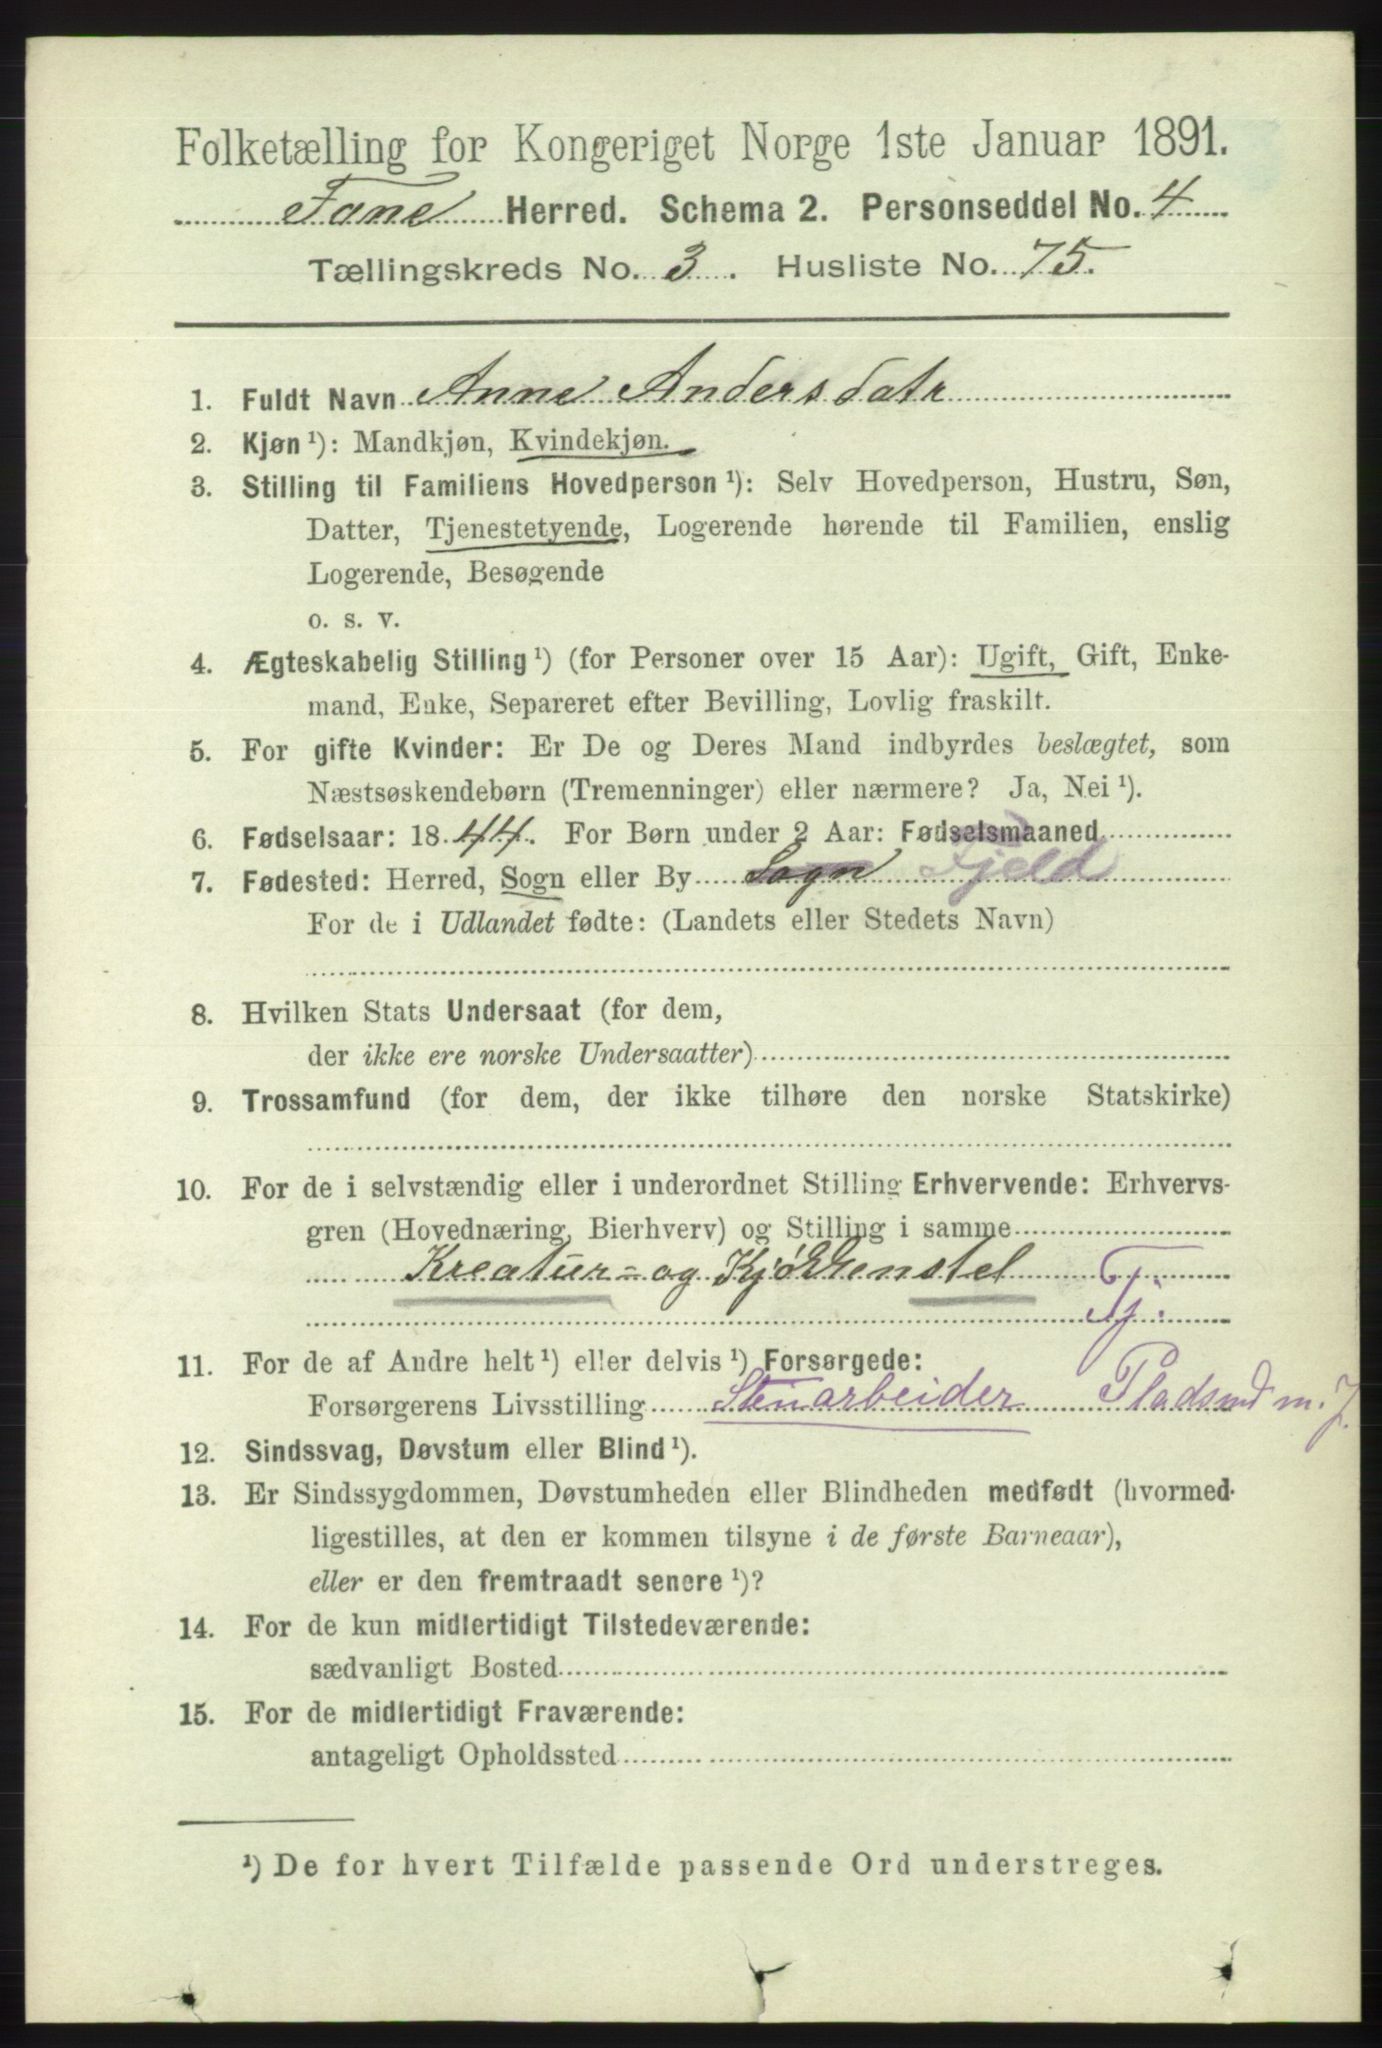 Folketælling for Kongeriget Norge 1ste Januar 1891.
Fane Herred. Schema 2. Personseddel No. 4
Tællingskreds No. 3. Husliste No. 75.
1. Fuldt Navn Anne Andersdatr
2. Kjøn ¹): Mandkjøn, Kvindekjøn.
3. Stilling til Familiens Hovedperson ¹): Selv Hovedperson, Hustru, Søn,
Datter, Tjenestetyende, Logerende hørende til Familien, enslig
Logerende, Besøgende
o. s. v.
4. Ægteskabelig Stilling ¹) (for Personer over 15 Aar): Ugift, Gift, Enke-
mand, Enke, Separeret efter Bevilling, Lovlig fraskilt.
5. For gifte Kvinder: Er De og Deres Mand indbyrdes beslægtet, som
Næstsøskendebørn (Tremenninger) eller nærmere? Ja, Nei ¹).
6. Fødselsaar: 1844. For Børn under 2 Aar: Fødselsmaaned
7. Fødested: Herred, Sogn eller By Sogn Fjeld
For de i Udlandet fødte: (Landets eller Stedets Navn)
8. Hvilken Stats Undersaat (for dem,
der ikke ere norske Undersaatter)
9. Trossamfund (for dem, der ikke tilhøre den norske Statskirke)
10. For de i selvstændig eller i underordnet Stilling Erhvervende: Erhvervs-
gren (Hovednæring, Bierhverv) og Stilling i samme
Kreatur- og Kjøkkenstel
Tj.
11. For de af Andre helt ¹) eller delvis ¹) Forsørgede:
Forsørgerens Livsstilling Stenarbeider Pladsmd m. J.
12. Sindssvag, Døvstum eller Blind ¹).
13. Er Sindssygdommen, Døvstumheden eller Blindheden medfødt (hvormed
ligestilles, at den er kommen tilsyne i de første Barneaar),
eller er den fremtraadt senere ¹)?
14. For de kun midlertidigt Tilstedeværende:
sædvanligt Bosted
15. For de midlertidigt Fraværende:
antageligt Opholdssted
¹) De for hvert Tilfælde passende Ord understreges.